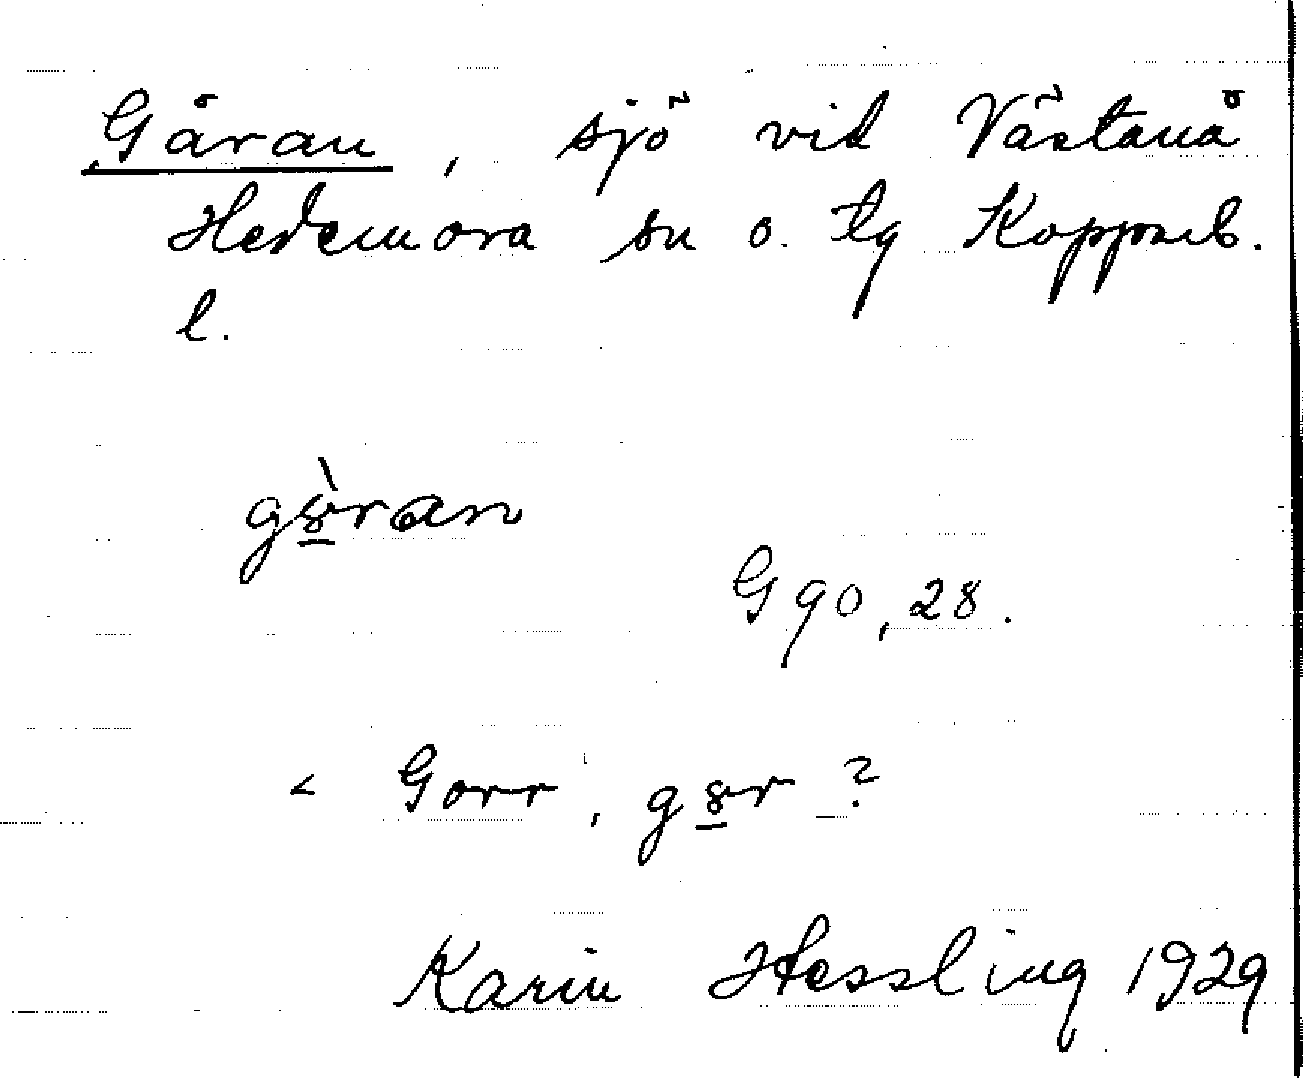 Gåran, sjö vid Västanå
Hedemora sn o. tg Kopparb.
l.
gȣ̀ran
G 90, 28.
< Gorr, gȣr ?
Karin Hessling 1929